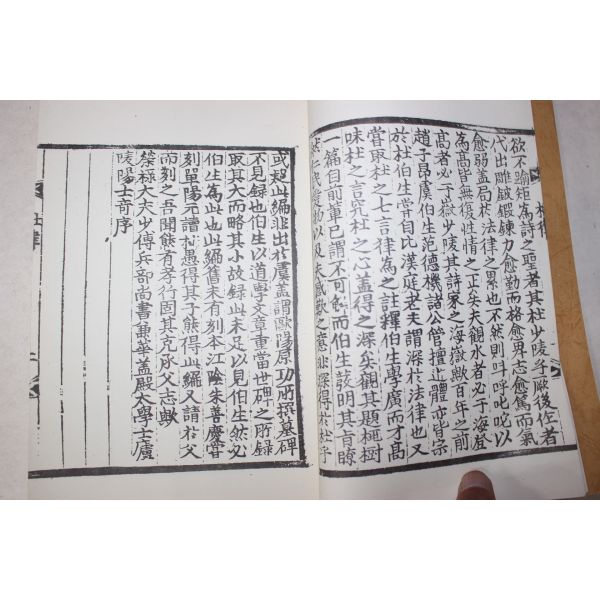 欲不踰矩為詩之聖者其杜少陵乎厥後作者
代出雕鎪鍛鍊力愈勤而格愈卑志愈篤而氣
愈弱盖局於法律之累也不然則叫呼叱咤以
為髙皆無復性情之正矣夫觀水者必于海登
髙者必于嶽少陵其詩家之海嶽歟百年之前
趙子昂虞伯生范德機諸公皆擅近體亦皆宗
於杜伯生嘗自比漢庭老吏謂深於法律也又
嘗取杜之七言律為之註釋伯生學廣而才髙
味杜之言究杜之心盖得之深矣觀其題桃樹
一篇自前軰已謂不可觧而伯生發明其旨瞭
然仁民愛物以及夫感歎之意非深得於杜乎
或疑此編非出於虞盖謂歐陽原功所撰墓碑
不見録也伯生以道學文章重當世碑之所録
取其大而略其小故録此未足以見伯生然必
伯生為此也此編舊未有刻本江陰朱善慶嘗
刻單陽元讀杜愚得其子熊得此編又請於父
而刻之吾聞熊有孝行固其克承父志歟
榮禄大夫少傅兵部尚書兼華盖殿大學士廬
陵楊士奇序
杜律